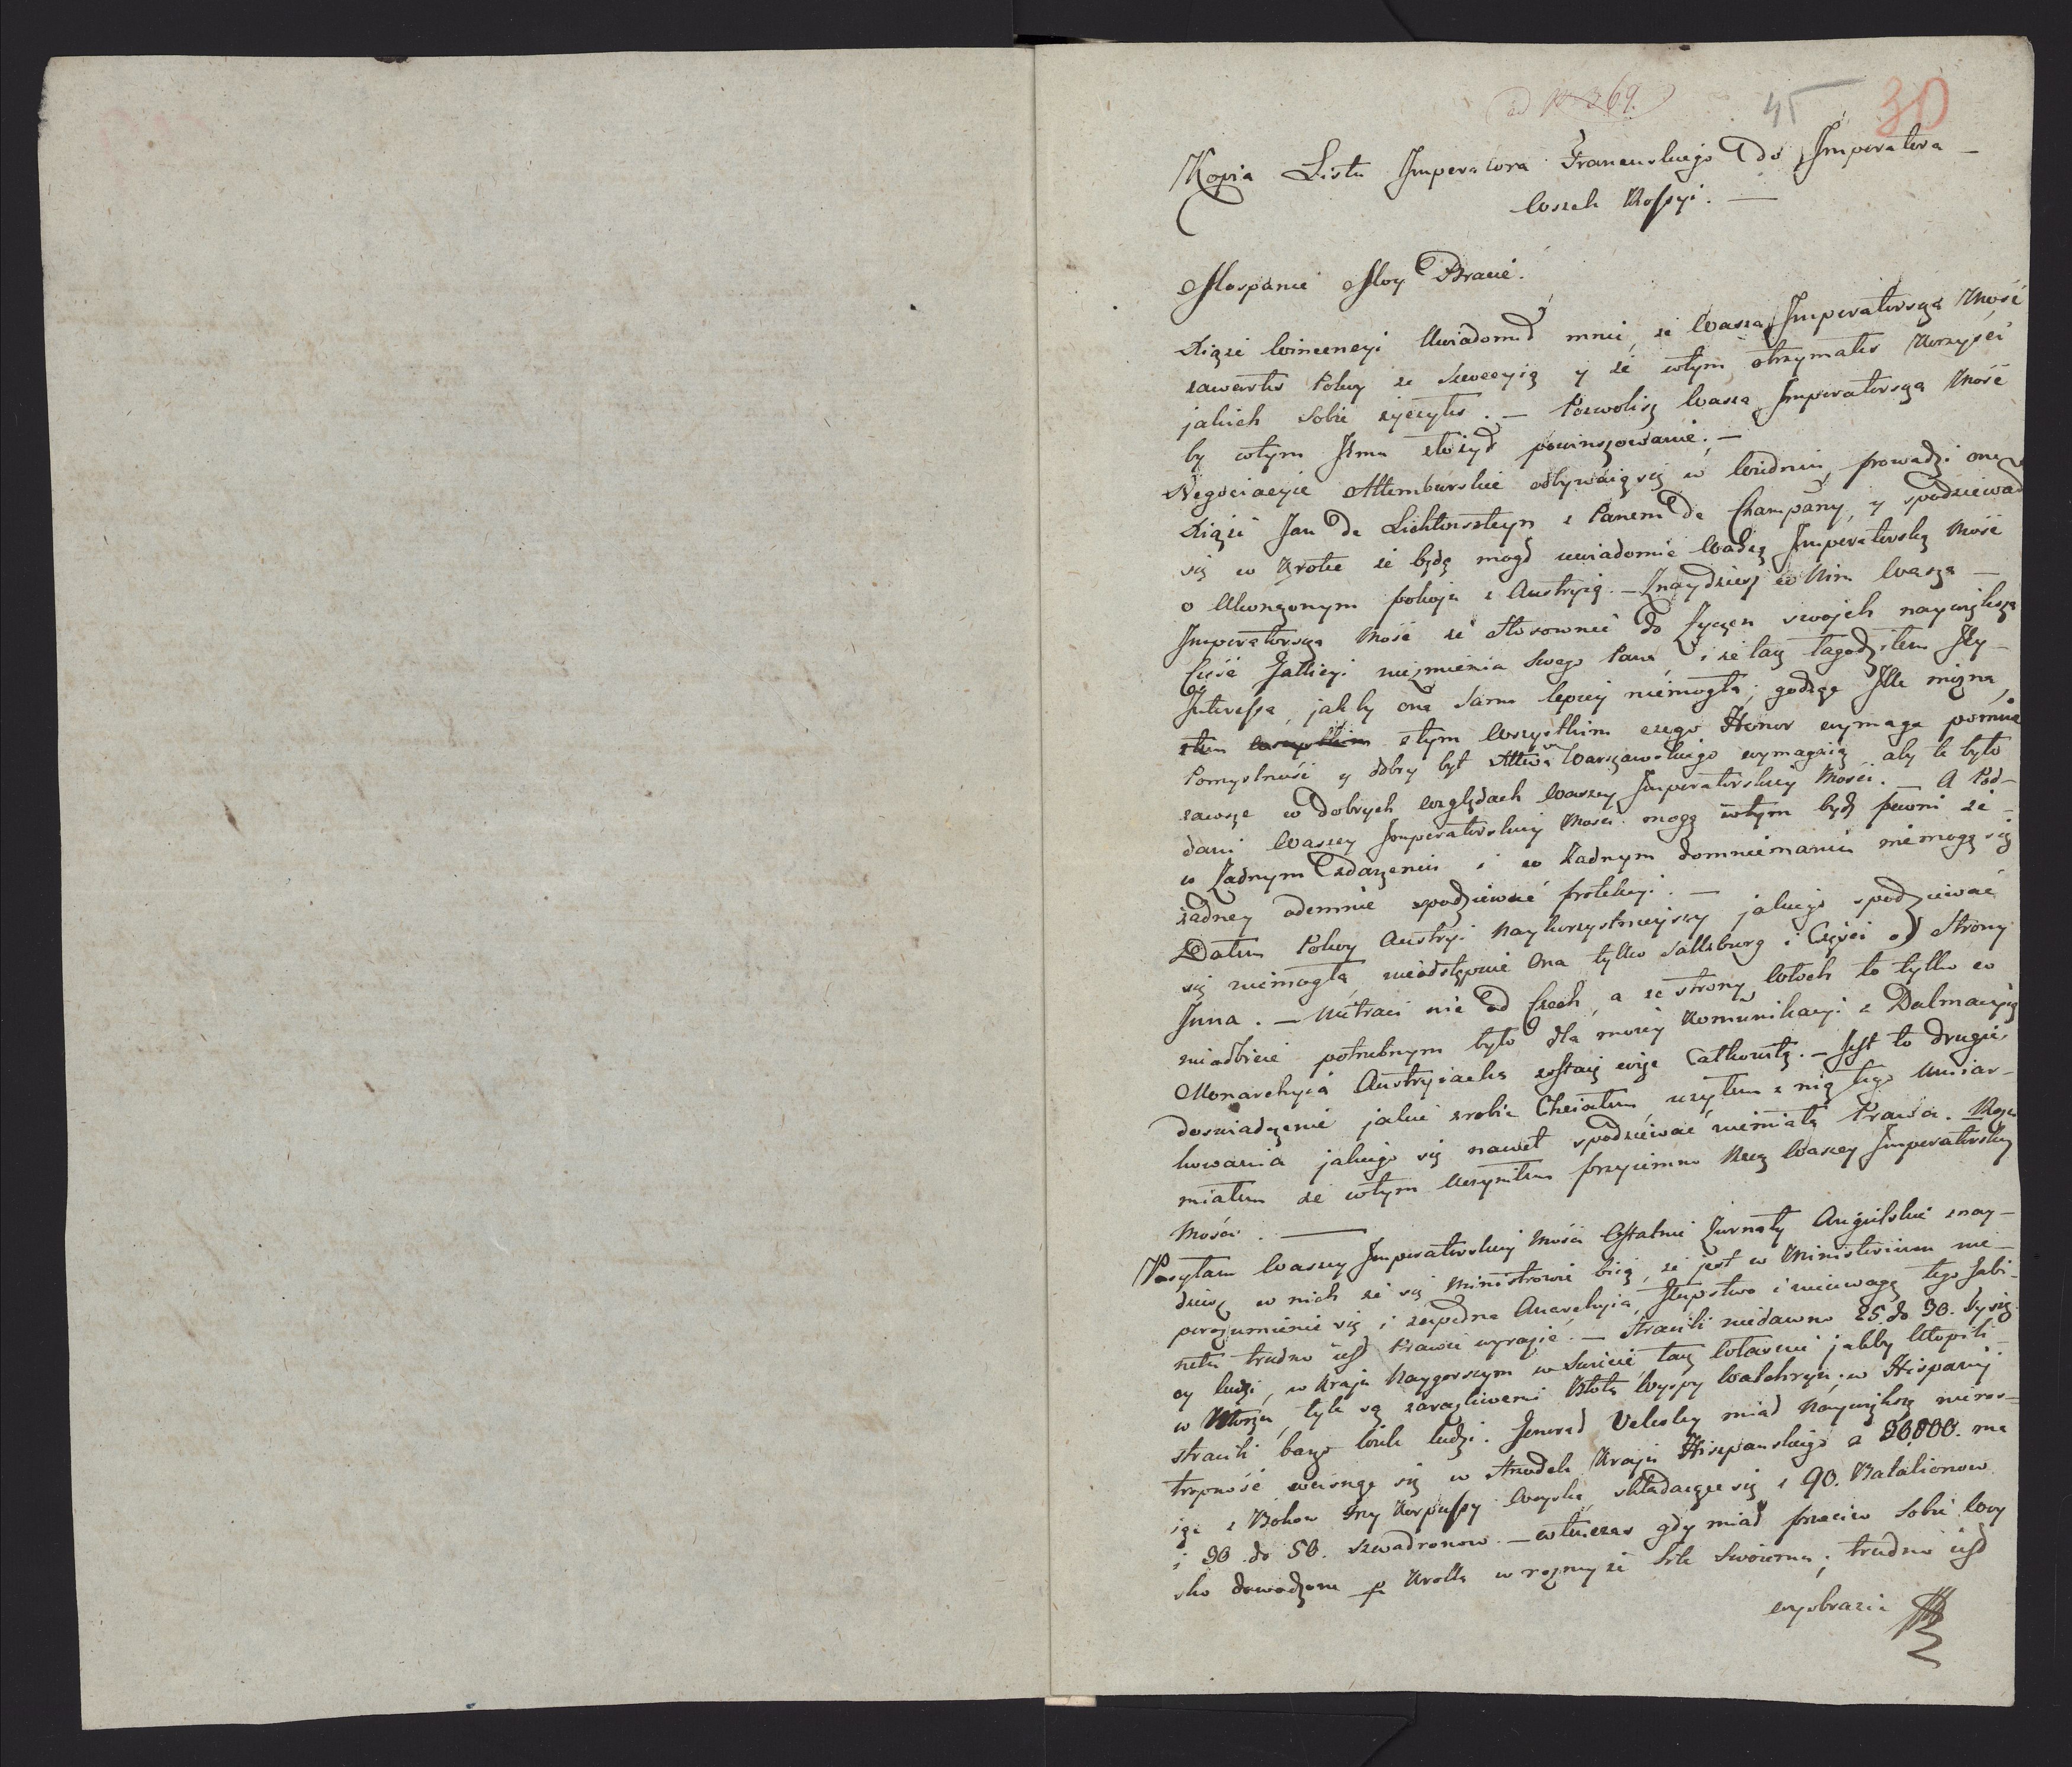 ad N 369.
45 30
Kopia Listu Imperatora Francuskiego do Imperatora
Wszech Rossyi. —
Mospanie Moy Bracie.
Xiąże Wincencyi Uwiadomił mnie, że Wasza Imperatorska Mość
zawarłeś Pokoy ze Szwecyią y że wtym otrzymałeś Korzyści
jakich Sobie życzyłeś. — Pozwolisz Wasza Imperatorska Mość
by wtym Jemu złożył powinszowanie. —
Negociacyie Altemburskie odbywaią się w Widniu, prowadzi one
Xiąże Jan de Lichtensztyn z Panem de Champany, y spodziewam
się w Krotce że będę mogł uwiadomić Waszą Imperatorską Mość
o Ukonczonym pokoju z Austryią. — Znaydziesz w Nim Wasza —
Imperatorska Mość że Stosownie do Zyczen swojch naywiększa
Część Gallicyi nie zmienia Swego Pana, i że tak łagodziłem Jey —
Interessa, jakby ona Sama lepiey niemogła; godząc Ile można,
z tym Wszystkim czego Honor wymaga pomnie
Pomyslność y dobry byt Xttwa Warszawskiego wymagaią, aby te było
zawsze w dobrych względach Waszey Imperatorskiey Mości. — A Pod-
dani Waszey Imperatorskiey Mosci mogą wtym bydź pewni że —
w Zadnym Zdarzeniu i w Zadnym domniemaniu niemogą się
żadney odemnie spodziewać protekcyi. —
Dałem Pokoy Austryi Naykorzystnieyszy jakiego spodziewać
się niemogła, nieodstępuie Ona tylko Saltzburg i Części od Strony
Inna. — Nietraci nic od Czech, a ze strony Włoch to tylko co
niodbicie potrzebnym było dla moiey Komunikacyi z Dalmacyią
Monarchyia Austryiacka zostaię więc Całkowitą. — Jest to drugie
doswiadczenie jakie zrobic Chciałem, użyłem z nią tego Umiar-
kowania jakiego się nawet spodziewać niemiała Prawa.
miałem że wtym Uczyniłem przyiemno Rzecz Waszey Imperatorskiey
Mości. —
Posyłam Waszey Imperatorskiey Mości Ostatnie Zurnały Angielskie znay-
dziesz w nich że się Ministrowie biią, że jest w Ministerium nie-
porozumienie się i zupełna Anarchyia, Głupstwo i nieuwagę tego Gabi-
netu trudno iest Prawie wyrazić. — Stracili niedawno 25. do 30. tysię
cy ludzi, w kraju Naygorszym w Swiecie, tak Właśnie jakby Utopili
w Morzu, tyle są zarazliwemi Błota Wyspy Walchryn; w Hispanij
stracili bardzo Wiele ludzi. Jenerał Velesley miał Naywiększą nieroz-
tropność wciongnąć się w Srodek Kraju Hiszpanskiego z 30,000. ma
iąc z Bokow Trzy Korpussy Woyska, składaiące się z 90. Batalionow
i 30. do 50. szwadronow. — wtenczas gdy miał przeciw Sobie Woy
sko dowodzone p Krola w rozney że Sile Swoiema; trudno iest
wyobrazic